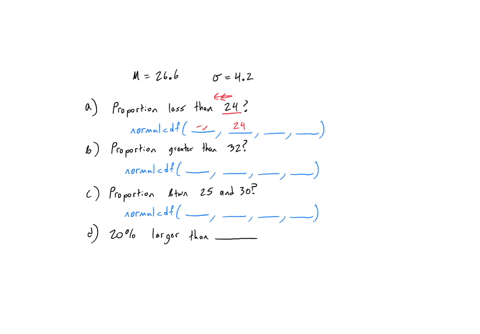 M = 26.6 σ = 4.2
a) Proportion less than 24?
normalcdf( -∞, 24, __, __ )
b) Proportion greater than 32?
normalcdf( __, __, __, __ )
c) Proportion btwn 25 and 30?
normalcdf( __, __, __, __ )
d) 20% larger than ____